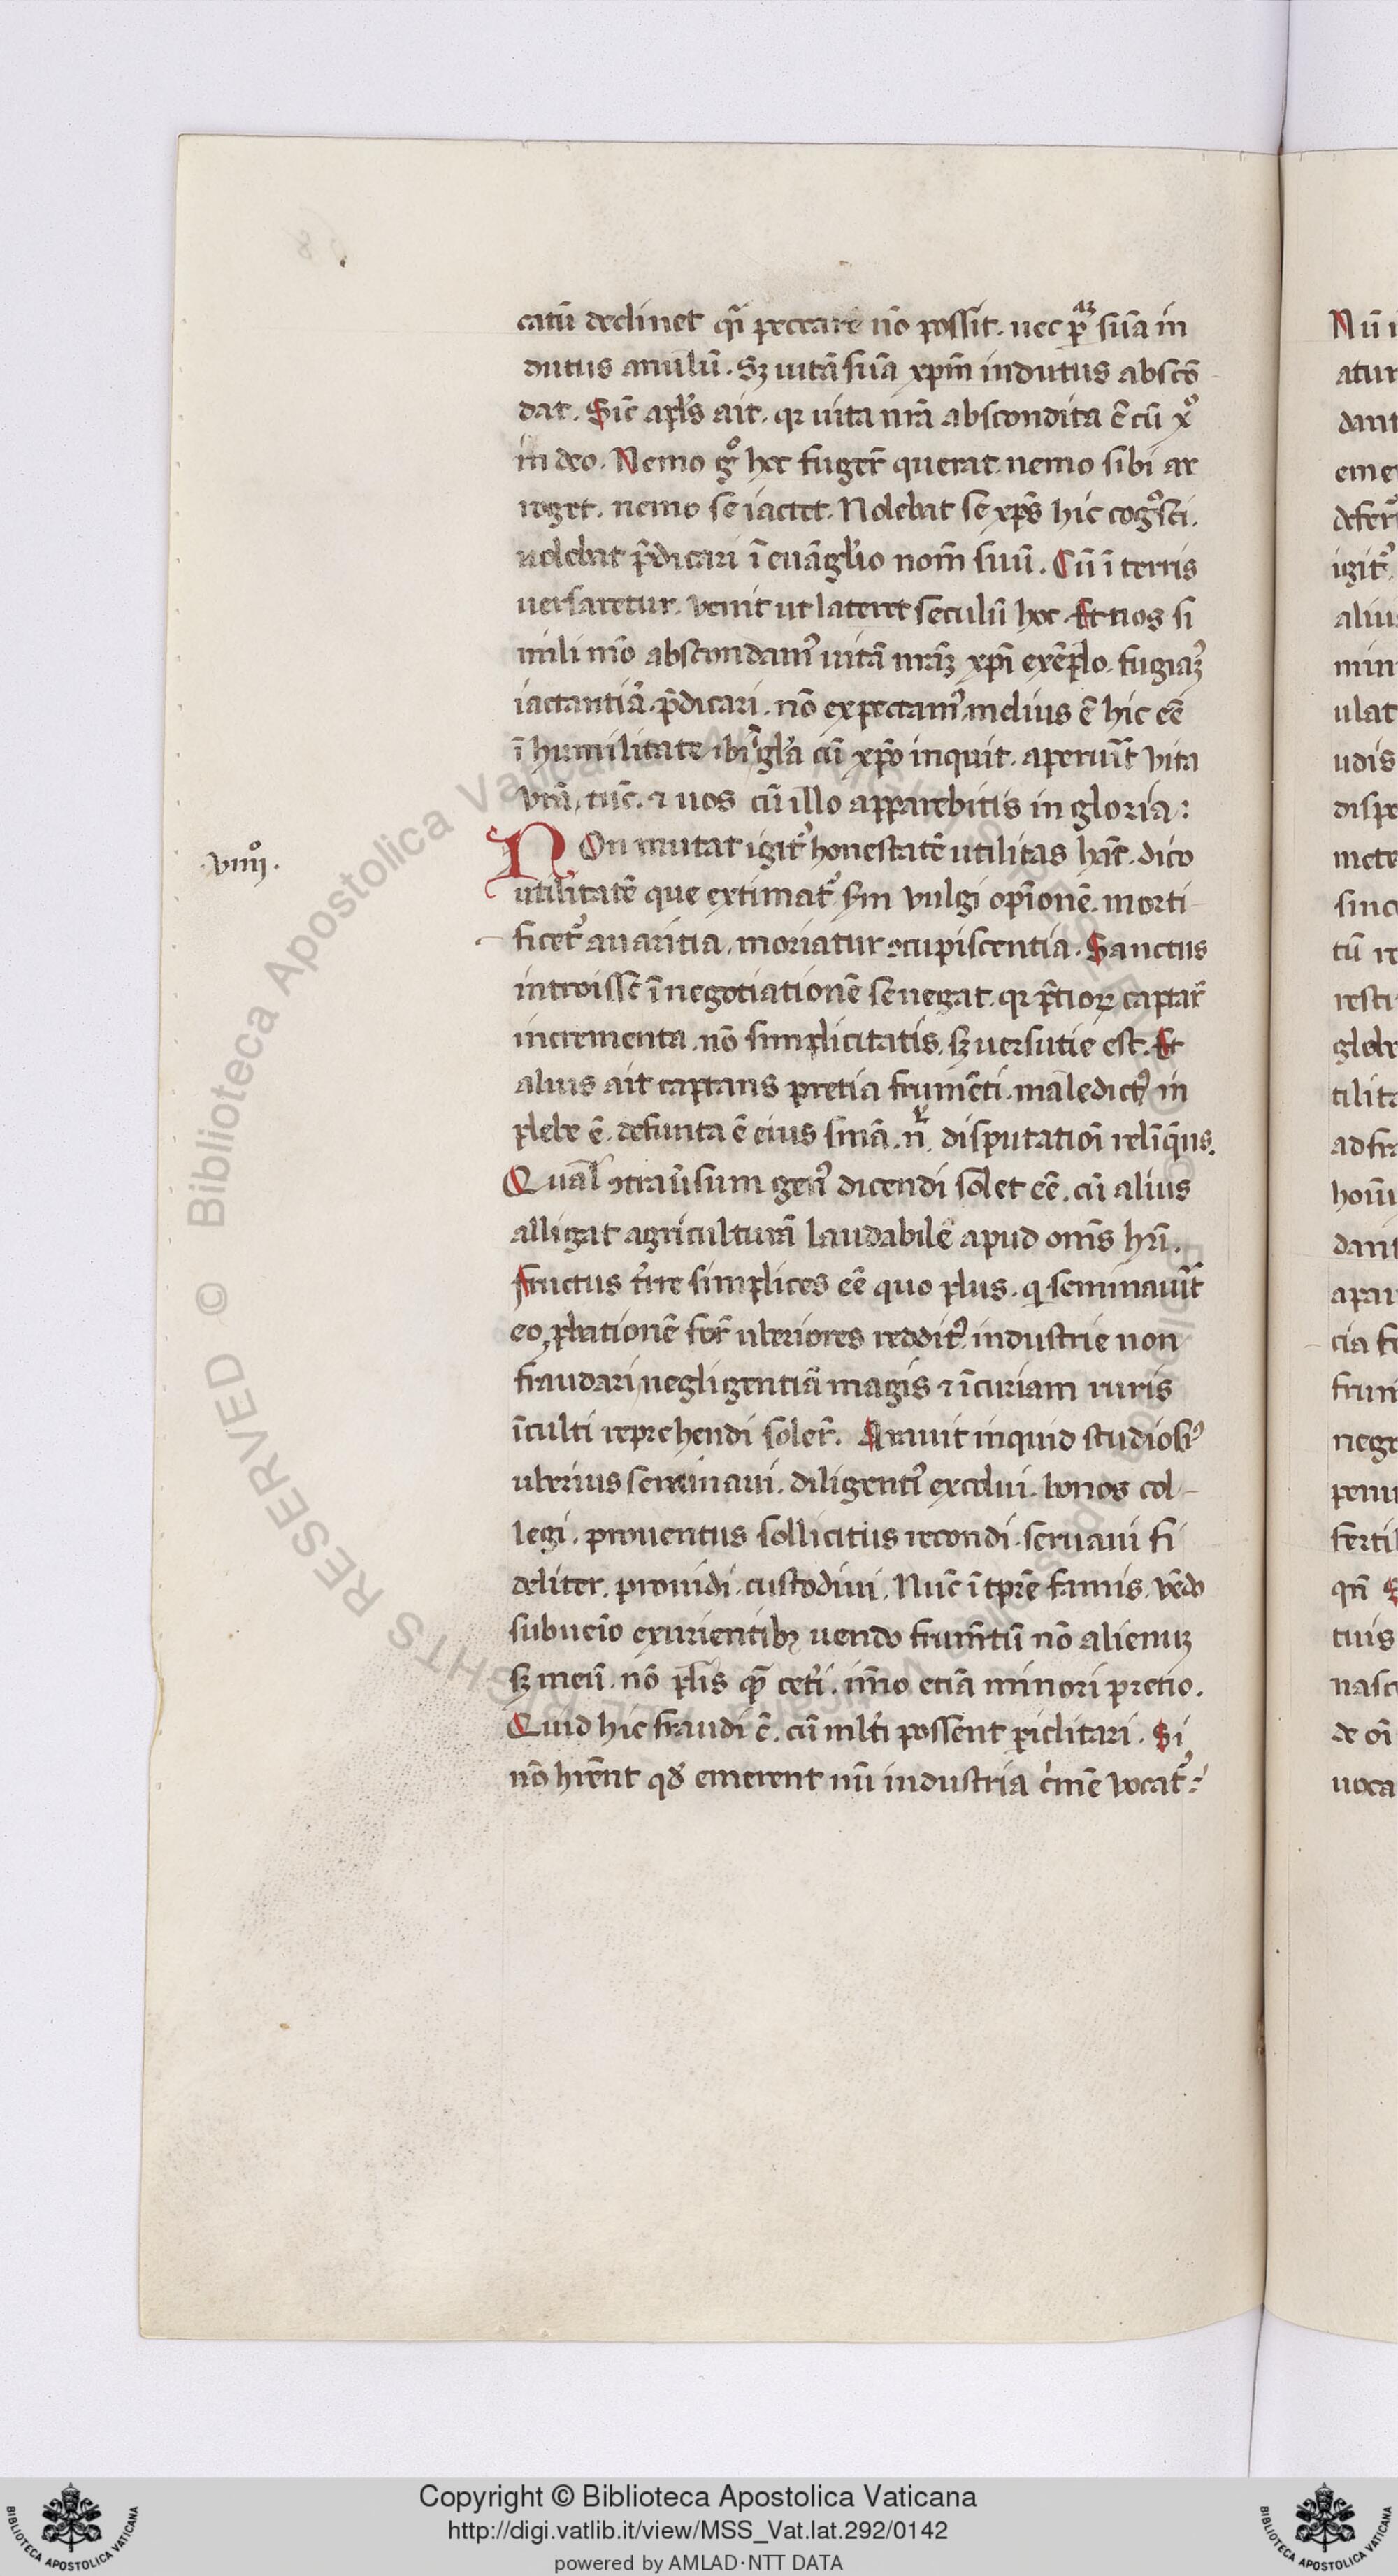 catū declinet qī peccare nō possit. nec ꝑ suā in
dutus anulū. Sꝫ uitā suā xp̄m indutus abscō
dat. Sic̄ apl̄s ait. qꝛ uita nr̄a abscondita ē cū xo
in deo. Nemo go hec fuger̄ querat. nemo sibi ar
roget. nemo se iactet. Nolebat se xp̄s hic cogosci.
nolebat p̄dicari ī euāglio nom̄ suū. Cū ī terris
uersaretur. venit ut lateret seculū hoc. Et nos si
mili mō abscondamꝰ uitā nr̄aꝫ xp̄i exēplo. fugiaꝫ
iactantiā. p̄dicari. nō expectamꝰ. melius ē hic ēe
ī humilitate ibi ī gl̄a cū xp̄o inquit. aperuīt vita
vr̄a, tūc. ⁊ uos cū illo apparebitis in gloria:
.viiijo.
NOn mutat igit honestatē utilitas hāt. dico
utilitatē que extimat. sm vulgi opīonē. morti
ficet auaritia, moriatur ꝯcupiscentia. Sanctus
introisse ī negotiationē se negat. qꝛ p̄tioꝝ captar̄
incrementa. nō simplicitatis. sꝫ uersutie est. Et
alius ait captans pretia frumēti. maledictꝰ in
plebe ē. defunta ē eius sn̄ia. n̄. disputatiōi reliq̄ns.
Qual̄ ꝯtrau̇sum genꝰ dicendi solet ēe. cū alius
alligat agriculturā laudabilē apud om̄s hr̄i.
Fructus tr̄re simplices ēe quo plus. q seminauīt
eo, ꝓbationē for̄ uberiores redditꝰ industrie non
fraudari negligentiā magis ⁊ īcuriam ruris
īculti reprehendi soler̄. Arauit inquid studiosiꝰ
uberius seminaui. diligentiꝰ excolui. bonos col-
legi. prouentus sollicitius recondi. seruaui fi
deliter. prouidi. custodiui. Nūc ī tpr̄e famis. vēdo
subueīo exurientibꝫ uendo frum̄tū nō alienuꝫ
sꝫ meū. nō pl̄is qꝫ cet̄i. im̄o etiā minori pretio.
Quid hic fraudi ē. cū ml̄ti possent ꝑiclitari. Si
nō hr̄ent qd̄ emerent nū industria c̄mē vocat.